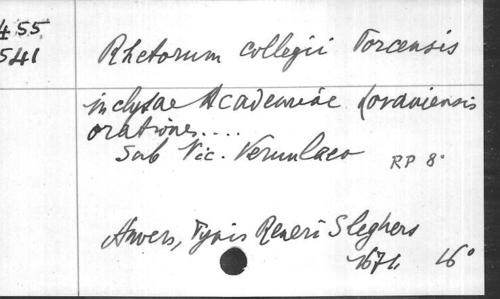 455
541
Rhetorum collegii Porcensis
inclytae Academiae Lovaniensis
orationes....
Sub Nic. Vernulaeo
RP 8°
Anvers, Typis Reneri Sleghers
1671. 16°